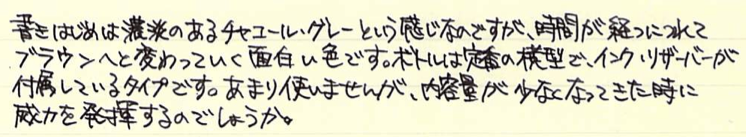 書きはじめは濃淡のあるチャコール・グレーという感じなのですが、時間が経つにつれて
ブラウンへと変わっていく面白い色です。ボトルは定番の横型で、インク・リザーバーが
付属しているタイプです。あまり使いませんが、内容量が少なくなってきた時に
威力を発揮するのでしょうか。